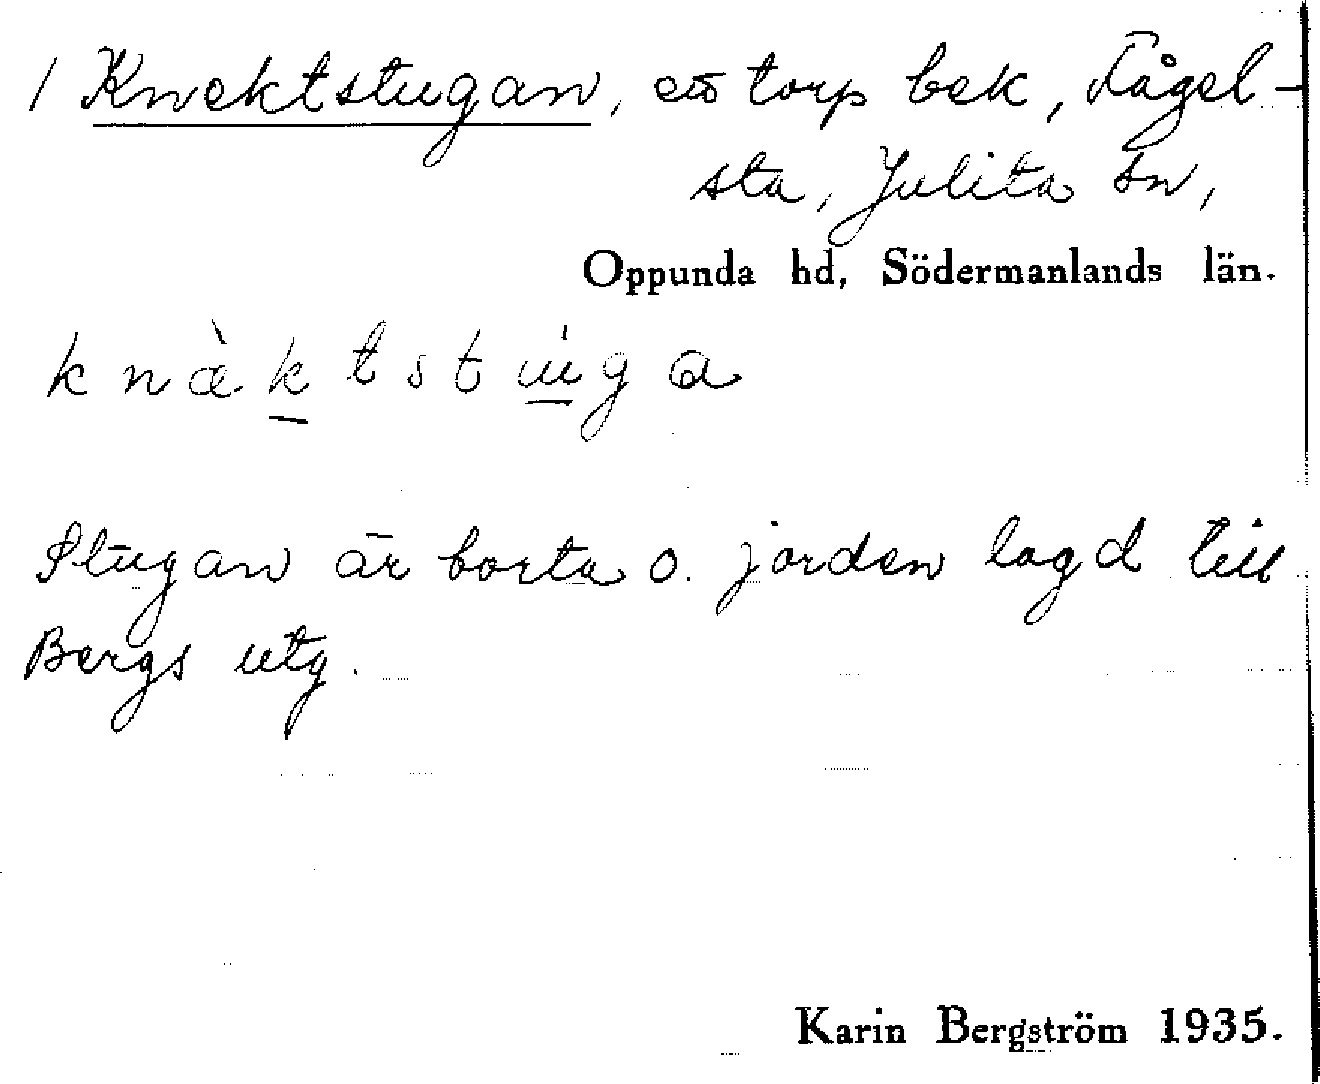 1 Knektstugan, ett torp bek, Fågel-
sta, Julita sn,
Oppunda hd, Södermanlands län.
knæ̀k̲tstu̲̇ga
Stugan är borta o. jorden lagd till
Bergs utg.
Karin Bergström 1935.